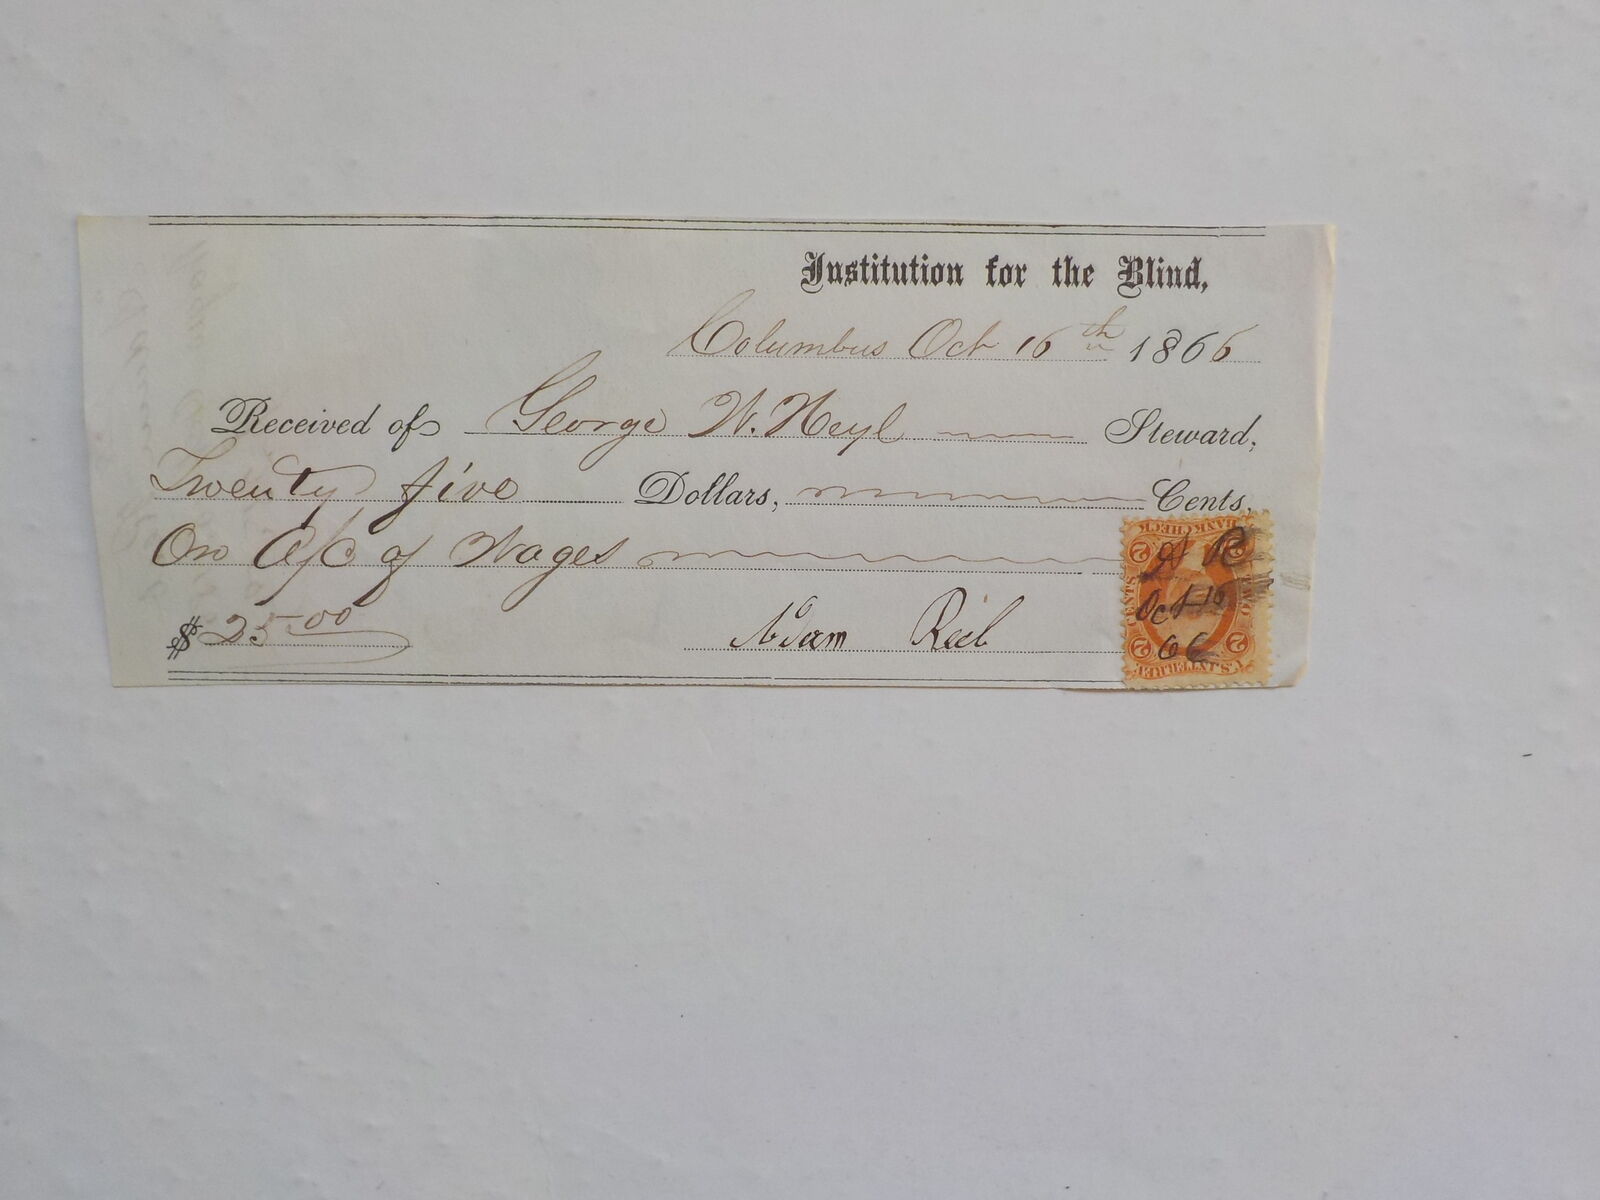 Institution for the Blind,
Columbus Oct 16th 1866
Received of George W. Heyl Steward,
Twenty five Dollars, Cents,
On a/c of Wages
$ 25.00
Adam Reeb
BANK CHECK
TWO
CENTS
U.S. INTER. REV.
2 2
2 2
A R
Oct 16
66